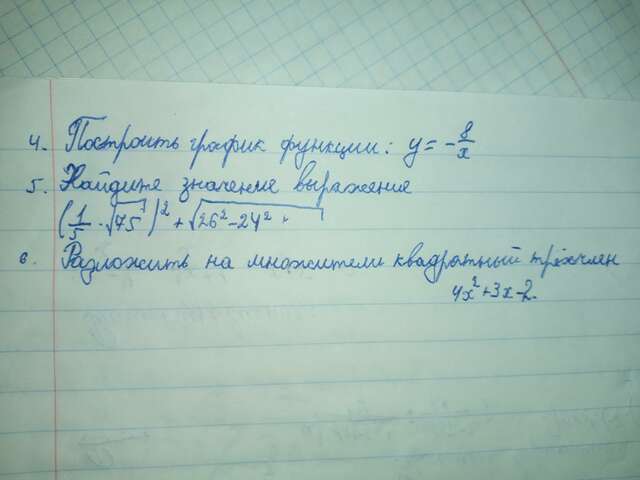 4. Построить график функции: y = -8/x
5. Найдите значение выражение
(1/5 · √75)² + √26² - 24²
6. Разложить на множители квадратный трёхчлен
4x² + 3x - 2.